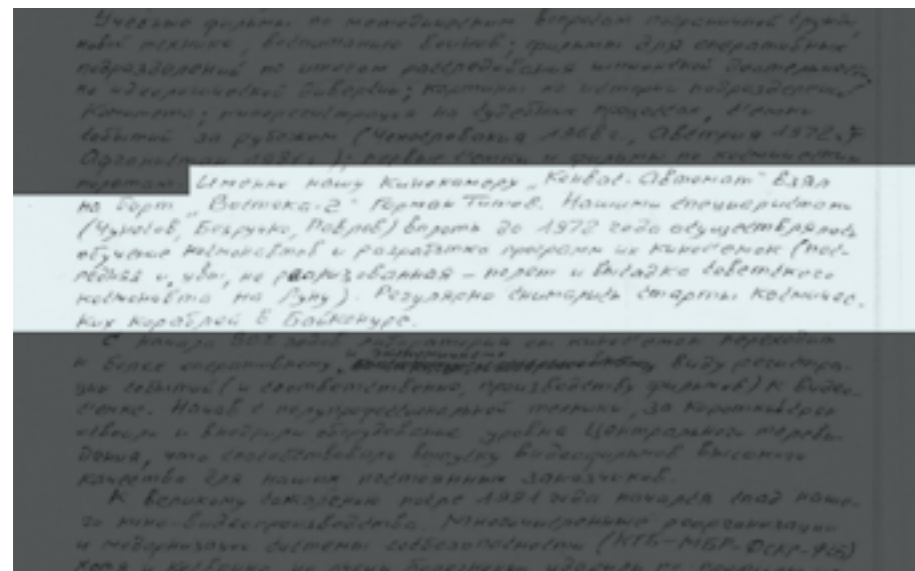 Учебные фильмы по методическим вопросам пограничной службы,
новой технике, воспитанию бойцов; фильмы для оперативных
подразделений по итогам расследования шпионской деятельности
по идеологической диверсии; картины по истории подразделений
Комитета; кинорегистрация на судебных процессах, съемки
событий за рубежом (Чехословакия 1968 г., Австрия 1972 г.,
Афганистан 198 г.); первые съемки и фильмы по космическим
полетам. Именно нашу кинокамеру „Конвас-Автомат" взял
на борт „Востока-2" Герман Титов. Нашими специалистами
(Чунаев, Безручко, Павлов) вплоть до 1972 года осуществлялось
обучение космонавтов и разработка программ их киносъемок (пос-
ледняя и, увы, не реализованная – полет и высадка советского
космонавта на Луну). Регулярно снимались старты космичес-
ких кораблей в Байконуре.
С начала 80х годов лаборатория от киносъемок переходит
к более оперативному, и виду регистра-
ции событий (и соответственно, производству фильмов) к видео-
съемке. Начав с полупрофессиональной техники, за короткий срок
освоили и внедрили оборудование уровня Центрального телеви-
дения, что способствовало выпуску видеофильмов высокого
качества для наших постоянных заказчиков.
К великому сожалению после 1991 года начался спад наше-
го кино-видеопроизводства. Многочисленные реорганизации
и модернизации системы госбезопасности (КГБ-МБР-ФСКР-ФСБ)
хотя и косвенно но очень болезненно ударили по